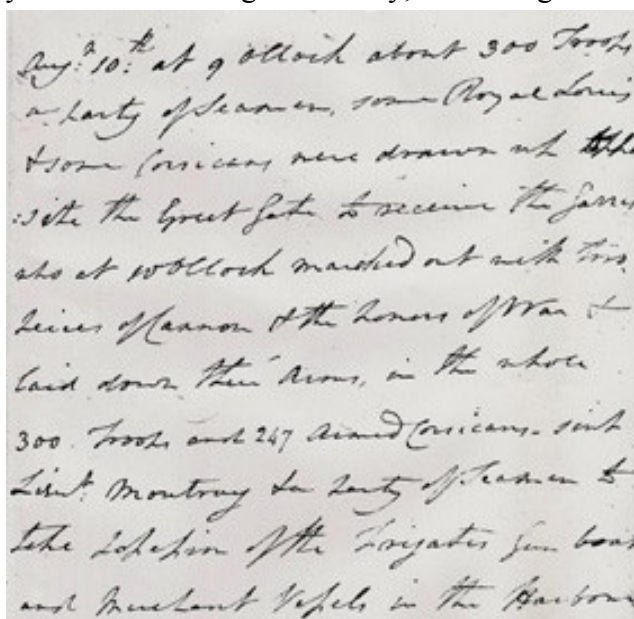 Augt. 10th. at 9 oClock about 300 Troops
a party of Seamen, some Royal Louis
& some Corsicans were drawn up
:site the Great Gate to receive the Garri
who at 10 oClock marched out with two
peices of Cannon & the honors of War &
laid down their Arms, in the whole
300 Troops and 247 Armed Corsicans. sent
Lieut. Moutray & a party of Seamen to
take possession of the Frigates Gun boat
and Merchant Vessels in the Harbour